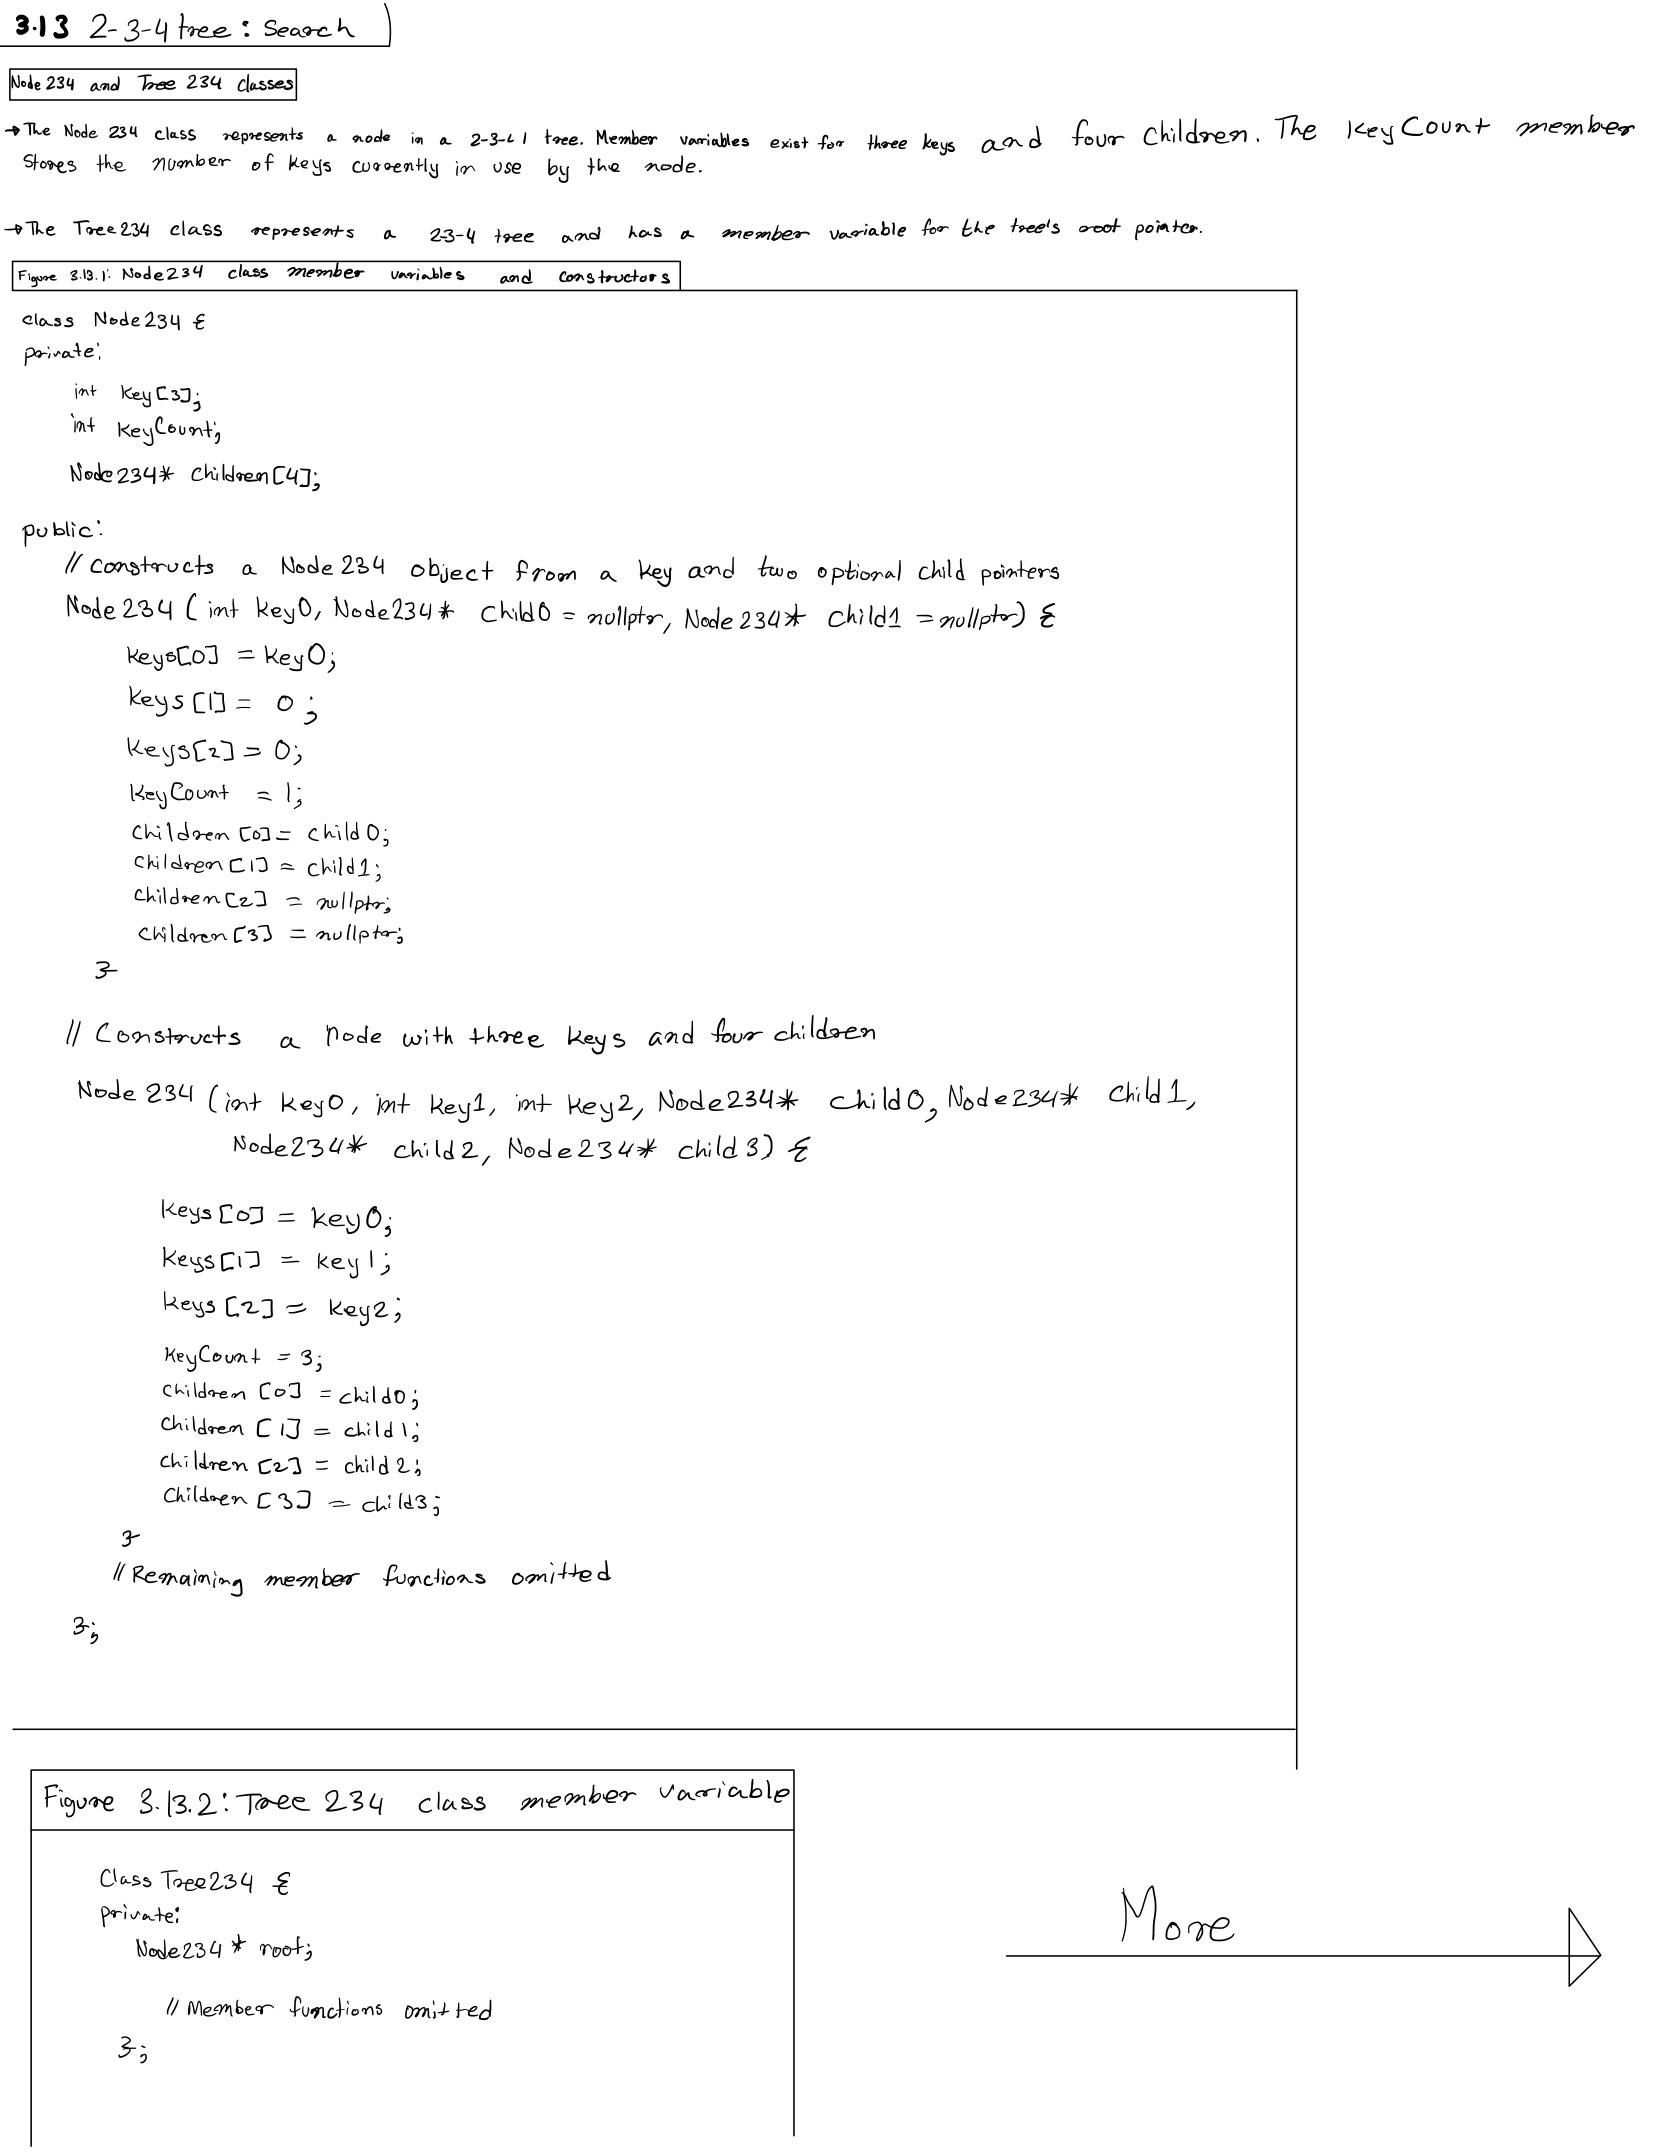 3.13 2-3-4 tree: Search
Node 234 and Tree 234 classes
→ The Node 234 class represents a node in a 2-3-4 tree. Member variables exist for three keys and four children. The keyCount member
stores the number of keys currently in use by the node.
→ The Tree234 class represents a 2-3-4 tree and has a member variable for the tree's root pointer.
Figure 3.13.1: Node234 class member variables and constructors
class Node234 {
private:
int key[3];
int keyCount;
Node234* children[4];
public:
// constructs a Node234 object from a key and two optional child pointers
Node234 (int key0, Node234* child0 = nullptr, Node234* child1 = nullptr) {
keys[0] = key0;
keys[1] = 0;
keys[2] = 0;
keyCount = 1;
children[0] = child0;
children[1] = child1;
children[2] = nullptr;
children[3] = nullptr;
}
// Constructs a node with three keys and four children
Node 234 (int key0, int key1, int key2, Node234* child0, Node234* child1,
Node234* child2, Node234* child3) {
keys[0] = key0;
keys[1] = key1;
keys[2] = key2;
keyCount = 3;
children[0] = child0;
children[1] = child1;
children[2] = child2;
children[3] = child3;
}
// Remaining member functions omitted
};
Figure 3.13.2: Tree 234 class member variable
Class Tree234 {
private:
Node234* root;
// Member functions omitted
};
More